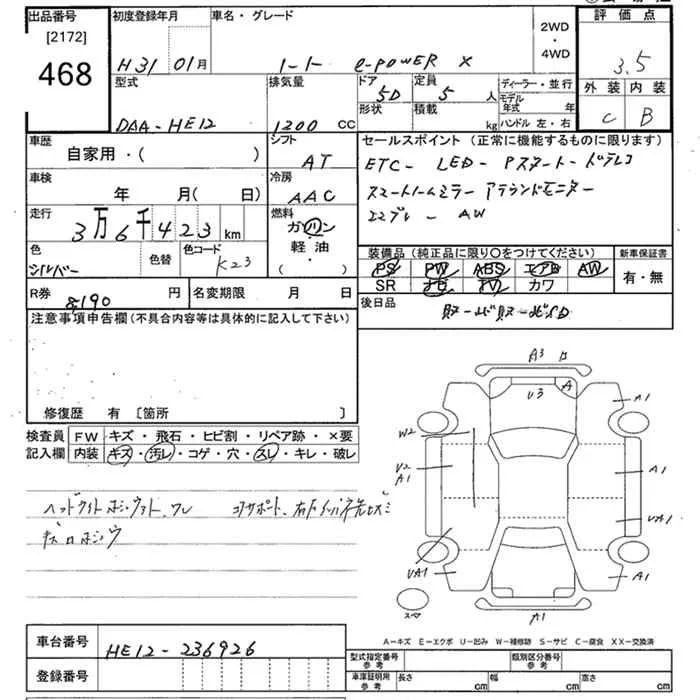 出品番号 初度登録年月 車名・グレード 2WD・4WD 評価点
[2172]
468 H31 01月 ノート e-POWER X 3.5
型式 排気量 ドア 定員 ディーラー・並行 外装 内装
5D 5人 モデル年式 年
形状 積載 C B
DAA-HE12 1200 CC kg ハンドル 左・右
車歴 シフト セールスポイント (正常に機能するものに限ります)
自家用・( ) AT ETC- LED- Pスタート- ドラレコ
車検 冷房 スマートルームミラー アラウンドモニター
年 月( 日) AAC エマブレ- AW
走行 燃料
3万6千423km ガソリン
軽油・
( )
色 色替 色コード 装備品 (純正品に限り○をつけてください) 新車保証書
シルバー K23 PS PW ABS エアB AW 有・無
SR ナビ TV カワ
R券 8190円 名変期限 月 日 後日品
注意事項申告欄 (不具合内容等は具体的に記入して下さい)
修復歴 有 〔箇所 〕
検査員 FW キズ・飛石・ヒビ割・リペア跡・×要
記入欄 内装 キズ・汚レ・コゲ・穴・スレ・キレ・破レ
A3
U3 A A1
W2
U2 A1
A1
UA1
UA1 A1
スペア A1
A-キズ E-エクボ U-凹み W-補修跡 S-サビ C-腐食 XX-交換済
車台番号 HE12-236926
登録番号
型式指定番号 参考 類別区分番号 参考
車庫証明用 参考 長さ cm 幅 cm 高さ cm